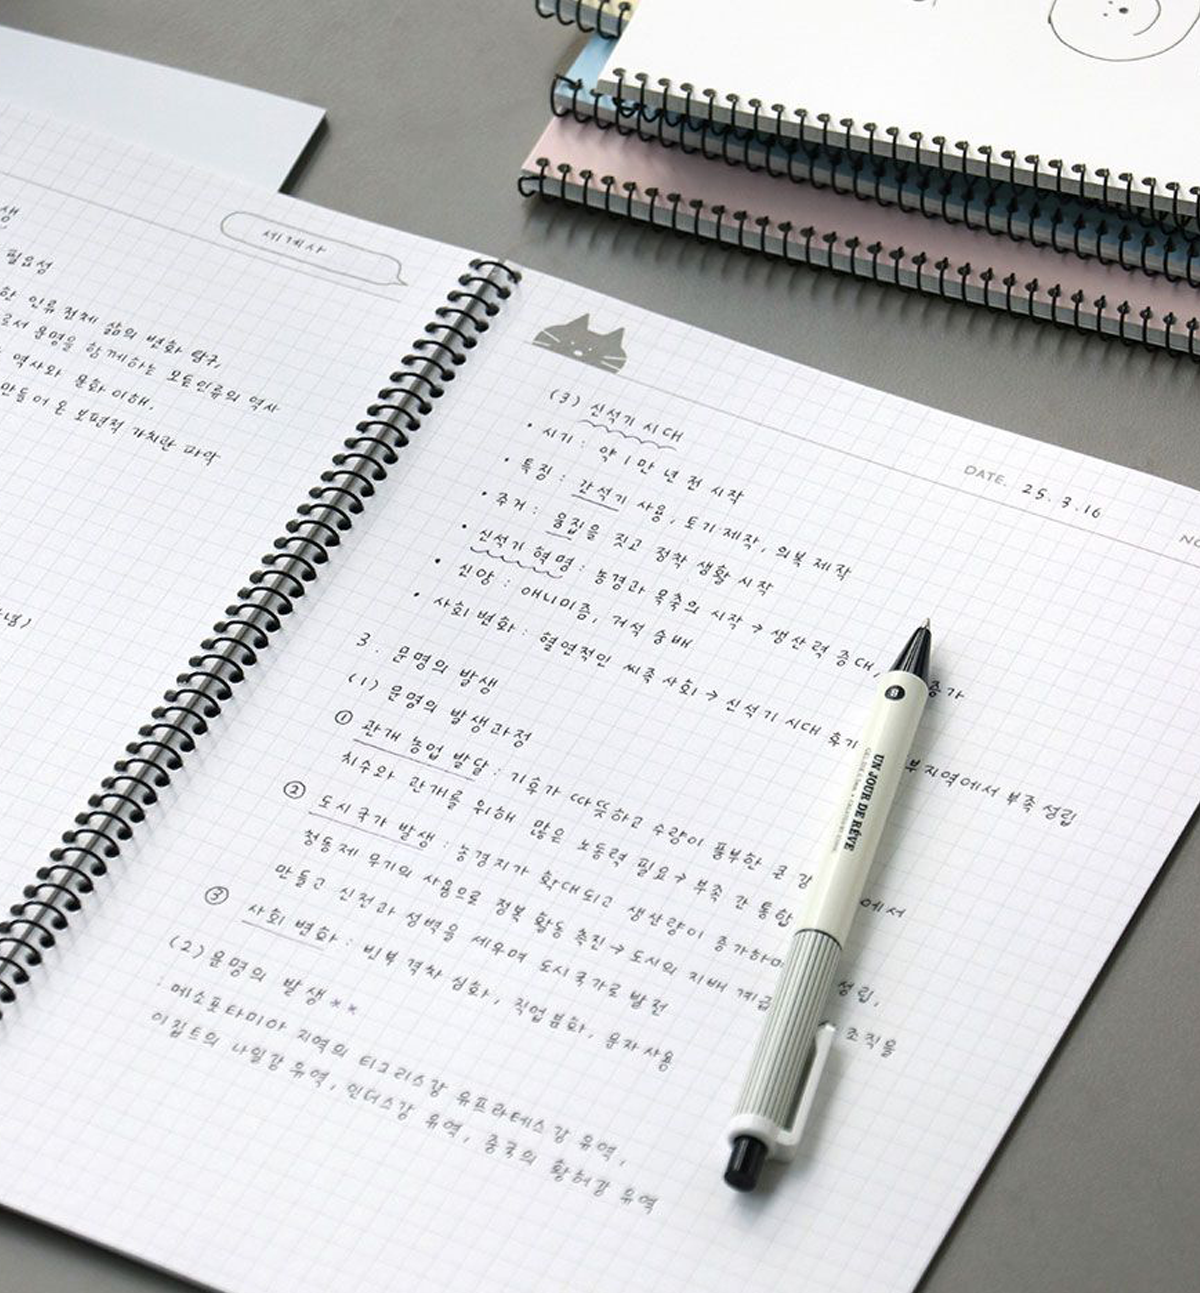 세계사
생
필요성
한 인류 전체 삶의 변화 탐구,
로서 문명을 함께하는 모든 인류의 역사
역사와 문화 이해,
만들어 온 보편적 가치관 파악
념)
DATE. 25. 3. 16
NO
(3) 신석기 시대
• 시기 : 약 1만 년 전 시작
• 특징 : 간석기 사용, 토기 제작, 의복 제작
• 주거 : 움집을 짓고 정착 생활 시작
• 신석기 혁명 : 농경과 목축의 시작 → 생산력 증대, 증가
• 신앙 : 애니미즘, 거석 숭배
• 사회 변화 : 혈연적인 씨족 사회 → 신석기 시대 후기 부 지역에서 부족 성립
3. 문명의 발생
(1) 문명의 발생 과정
① 관개 농업 발달 : 기후가 따뜻하고 수량이 풍부한 큰 강 에서
치수와 관개를 위해 많은 노동력 필요 → 부족 간 통합
② 도시 국가 발생 : 농경지가 확대되고 생산량이 증가하며 성립,
청동제 무기의 사용으로 정복 활동 촉진 → 도시의 지배 계급 조직을
만들고 신전과 성벽을 세우며 도시 국가로 발전
③ 사회 변화 : 빈부 격차 심화, 직업 분화, 문자 사용
(2) 문명의 발생 **
: 메소포타미아 지역의 티그리스강 유프라테스강 유역,
이집트의 나일강 유역, 인더스강 유역, 중국의 황허강 유역
UN JOUR DE RÊVE